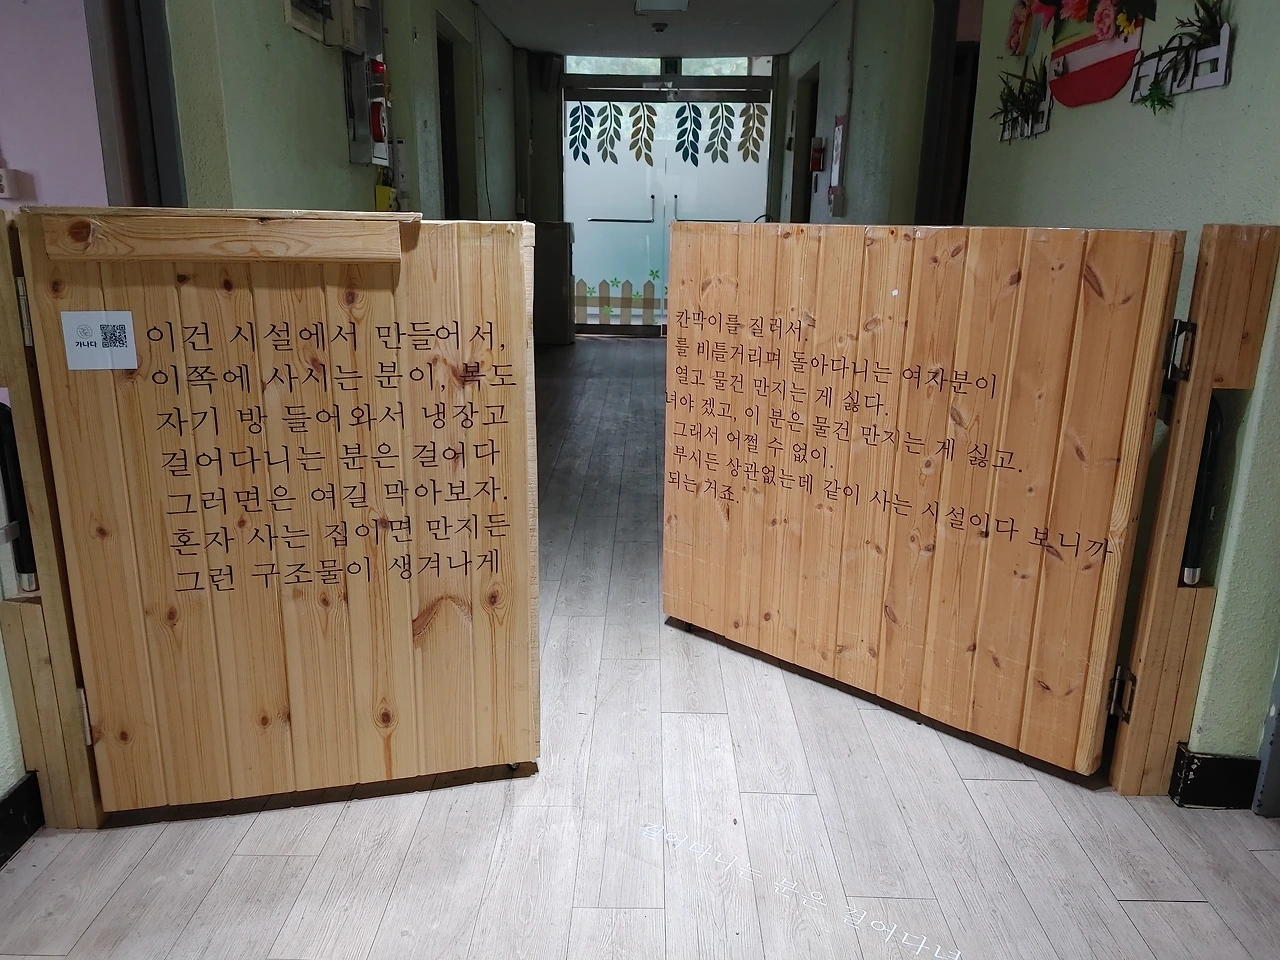 가나다
이건 시설에서 만들어서,
이쪽에 사시는 분이, 복도
자기 방 들어와서 냉장고
걸어다니는 분은 걸어다
그러면은 여길 막아보자.
혼자 사는 집이면 만지든
그런 구조물이 생겨나게
칸막이를 질러서?
를 비틀거리며 돌아다니는 여자분이
열고 물건 만지는 게 싫다.
녀야 겠고, 이 분은 물건 만지는 게 싫고.
그래서 어쩔 수 없이.
부시든 상관없는데 같이 사는 시설이다 보니까
되는 거죠.
걸어다니는 분은 걸어다녀